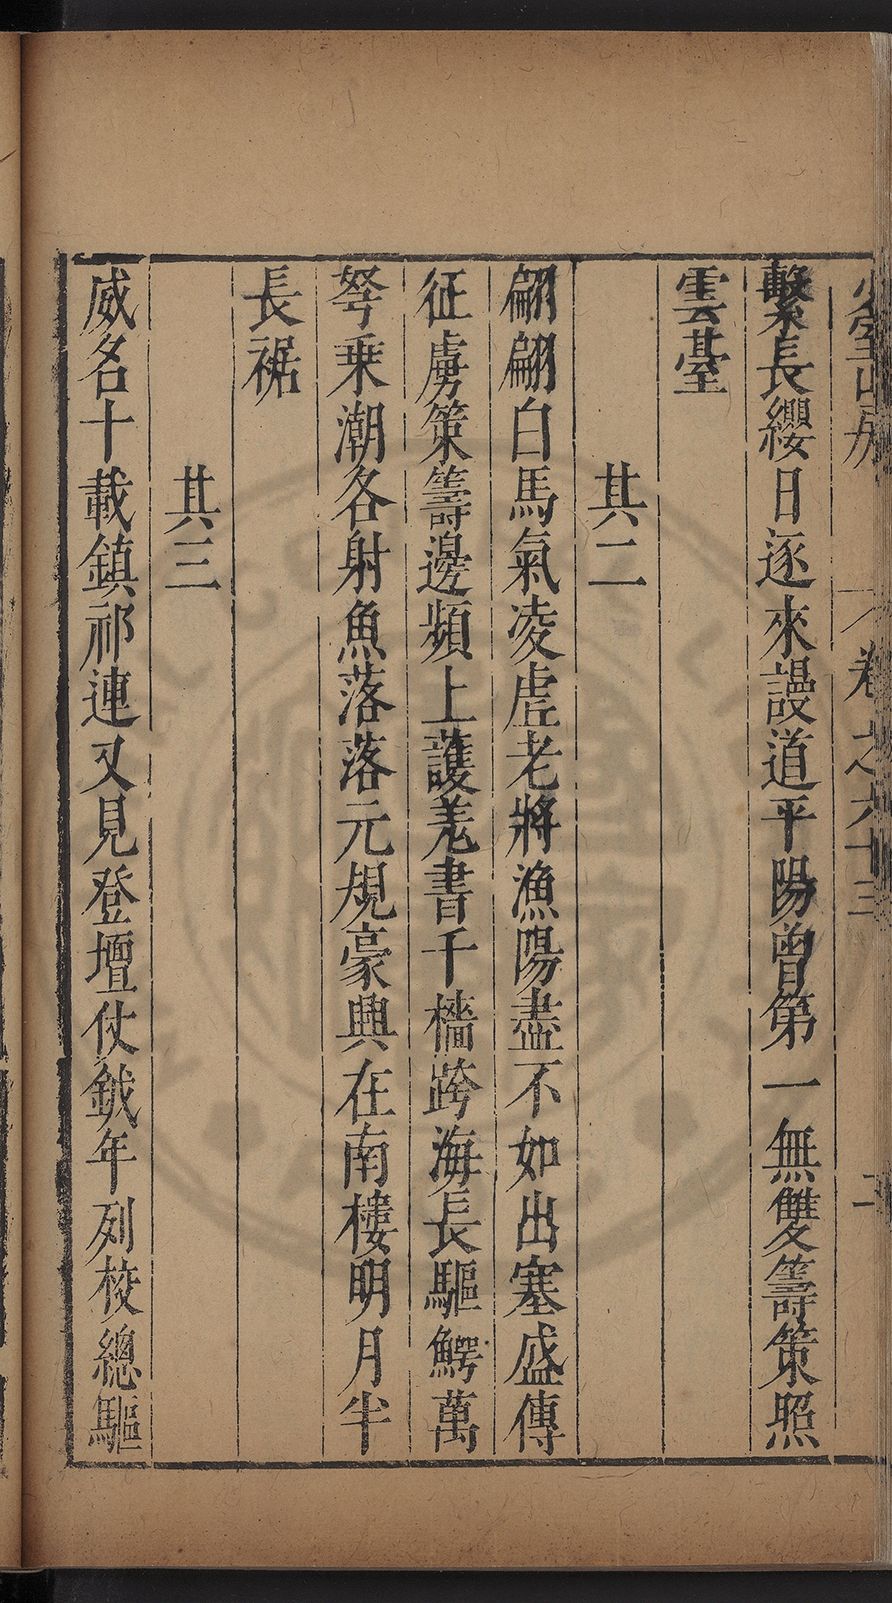 少室山房 卷之六十三 二
繫長纓日逐來謾道平陽曾第一無雙籌策照
雲臺
其二
翩翩白馬氣凌虛老將漁陽盡不如出塞盛傳
征虜策籌邊頻上護羌書千檣跨海長驅鰐萬
弩乗潮各射魚落落元規豪興在南樓明月半
長裾
其三
威名十載鎮祁連又見登壇仗鉞年列校總驅